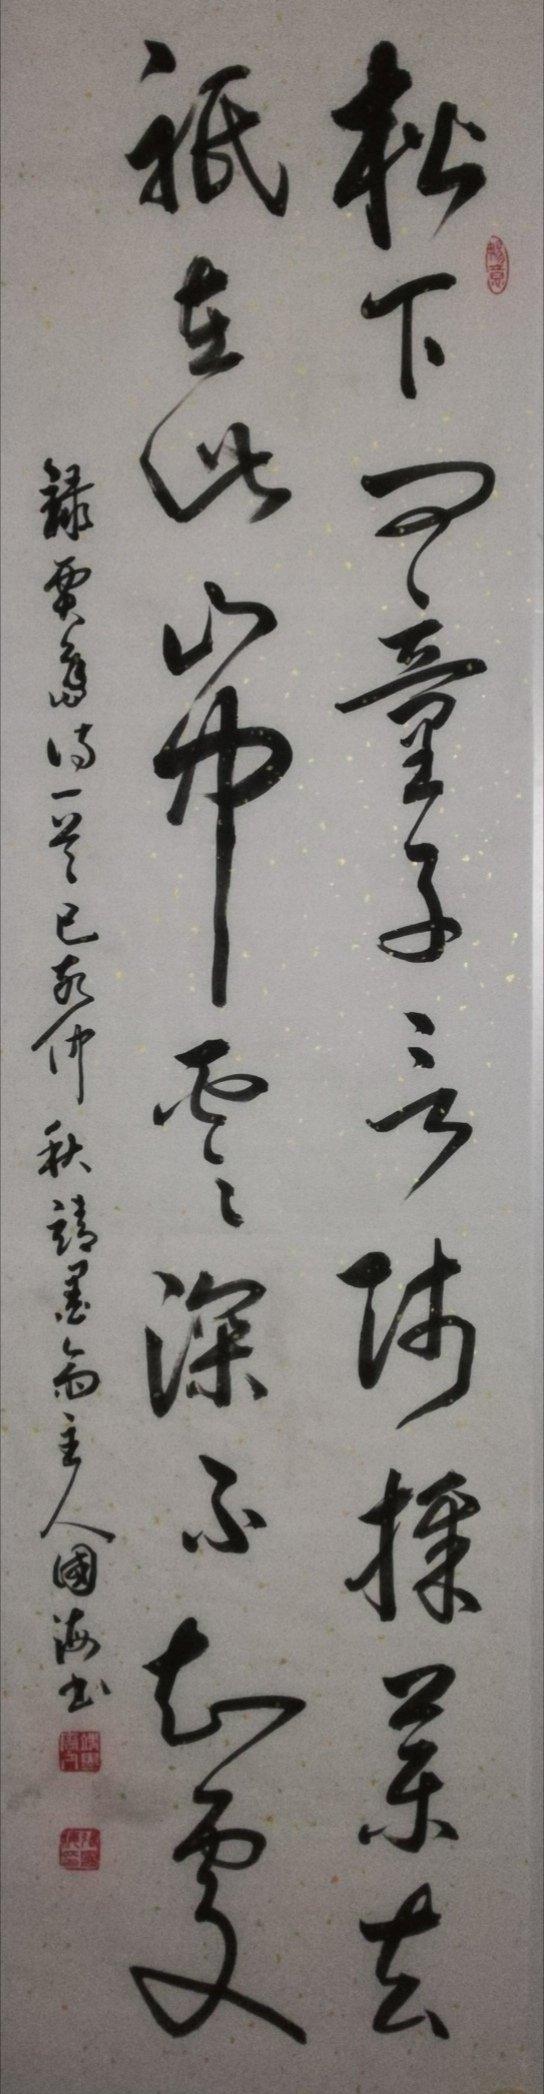 松下问童子言师採药去
祇在此山中云深不知處
錄賈島诗一首己亥仲秋靖墨斋主人國海书